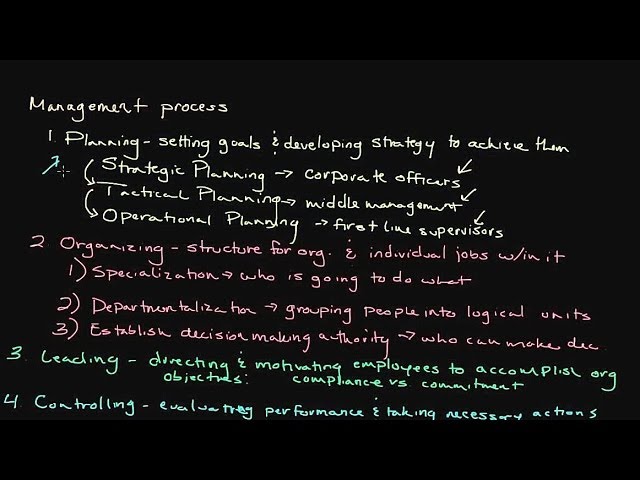 Management process
1. Planning - setting goals & developing strategy to achieve them
Strategic Planning → corporate officers
Tactical Planning → middle management
Operational Planning → first line supervisors
2. Organizing - structure for org. & individual jobs w/in it
1) Specialization → who is going to do what
2) Departmentalization → grouping people into logical units
3) Establish decision making authority → who can make dec.
3. Leading - directing & motivating employees to accomplish org
objectives: compliance vs. commitment
4. Controlling - evaluating performance & taking necessary actions